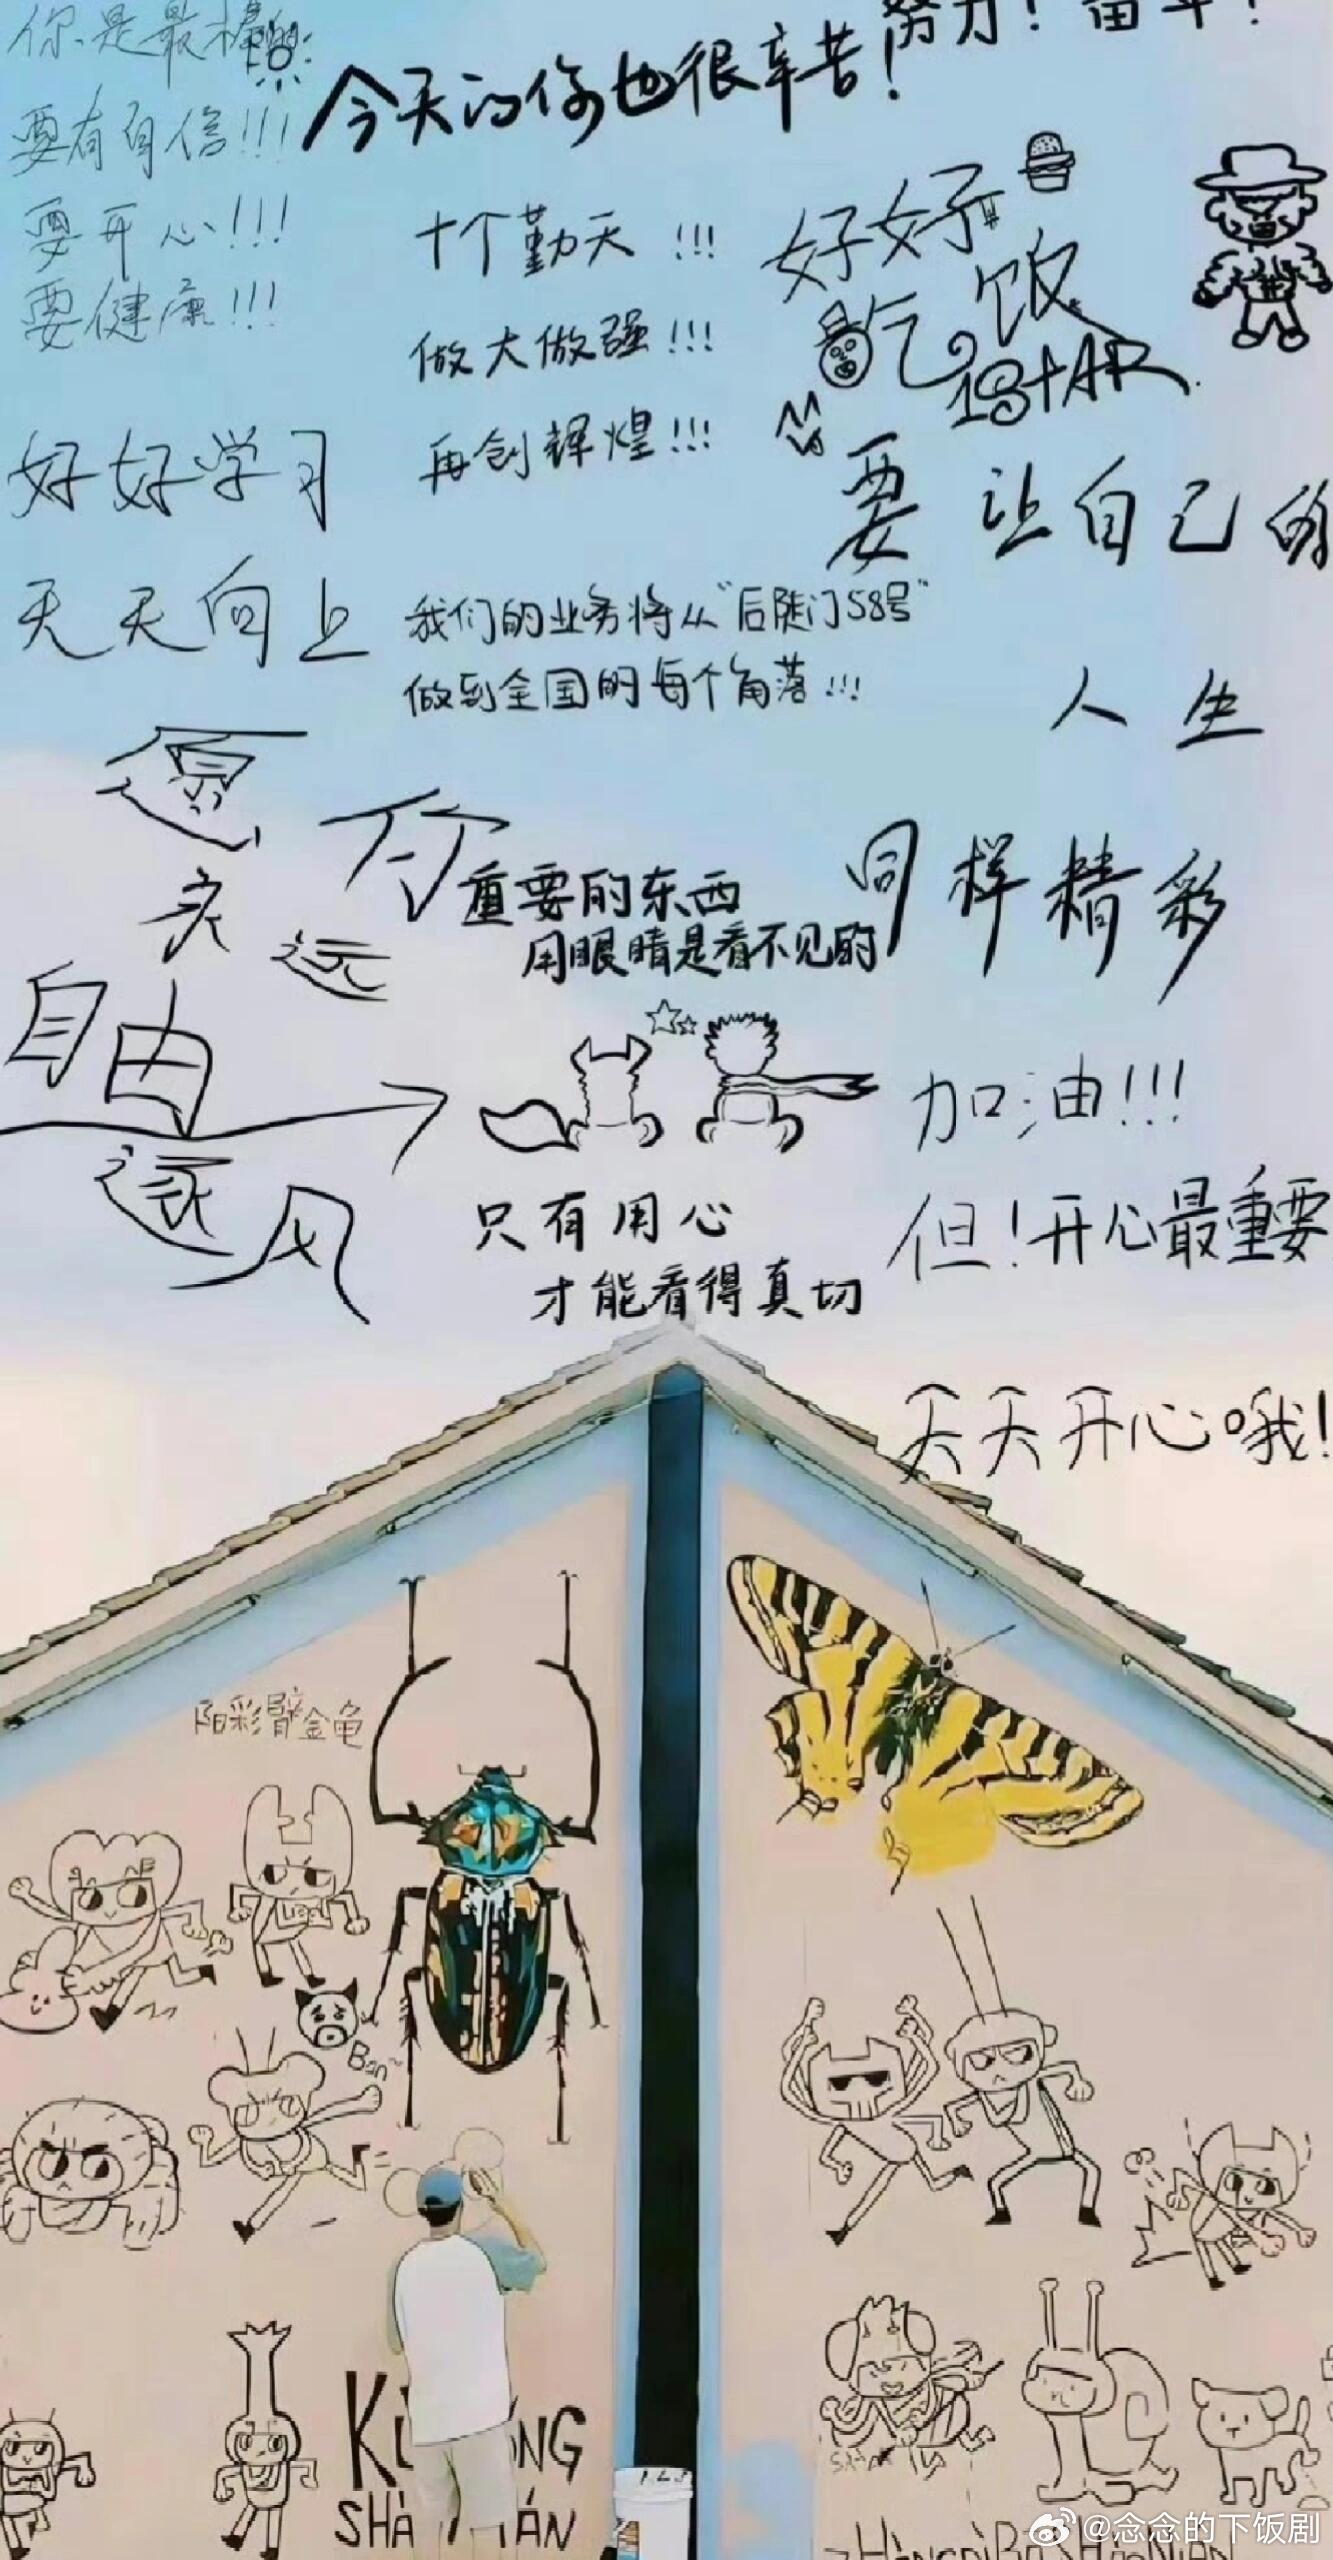 你是最棒的
要有自信!!!
要开心!!!
要健康!!!
今天的你也很辛苦!
努力!奋斗!
十个勤天!!!
做大做强!!!
再创辉煌!!!
好好
吃饭
1STAR
好好学习
天天向上
要让自己的
人生
同样精彩
我们的业务将从“后陡门58号”
做到全国的每个角落!!!
愿你
永远
自由
逐风
重要的东西
用眼睛是看不见的
只有用心
才能看得真切
加油!!!
但!开心最重要
天天开心哦!
阳彩臂金龟
Ban~
SHÀ
ÁN
@念念的下饭剧